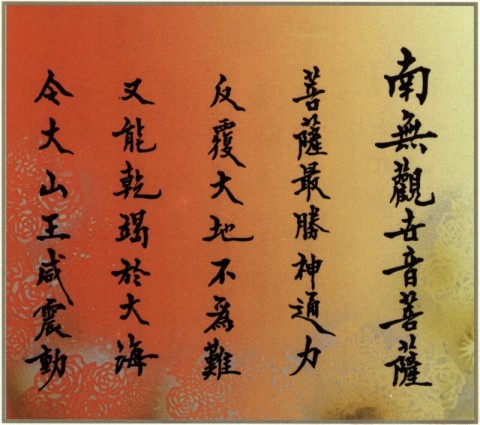 南無觀世音菩薩
菩薩最勝神通力
反覆大地不為難
又能乾竭於大海
令大山王咸震動